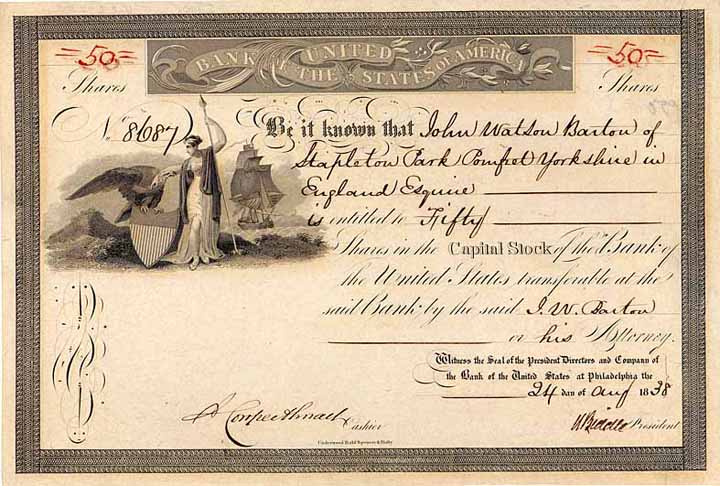 =50= BANK OF THE UNITED STATES OF AMERICA =50=
Shares Shares
No. 8687 Be it known that John Watson Barton of
Stapleton Park Pomfret Yorkshire in
England Esquire
is entitled to Fifty
Shares in the Capital Stock of the Bank of
the United States transferable at the
said Bank by the said J. W. Barton
or his Attorney.
Witness the Seal of the President Directors and Company of
the Bank of the United States at Philadelphia the
24 day of Aug 1838
Cashier N Biddle President
Underwood Bald Spencer & Hufty